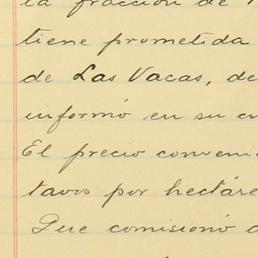 la fracción de
tiene prometida
de Las Vacas, de
informó en su
El precio conveni
tavos por hectáre
Que comisionó